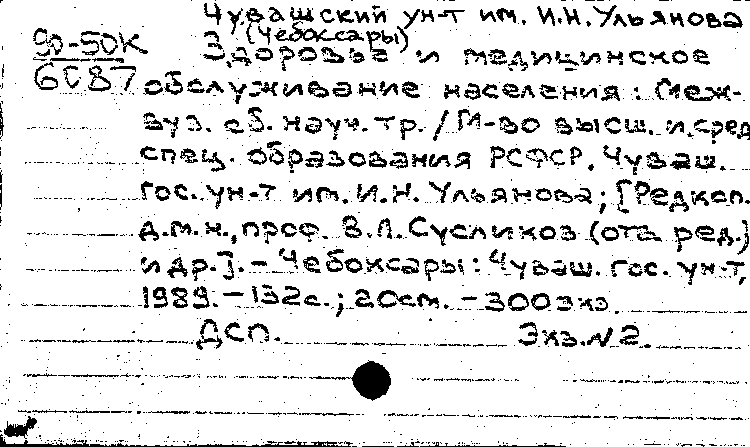 Чувашский ун-т им. И.Н. Ульянова
(Чебоксары)
90-50К
6087
Здоровье и медицинское
обслуживание населения: Меж-
вуз. сб. науч. тр. / М-во высш. и сред.
спец. образования РСФСР, Чуваш.
гос. ун-т им. И.Н. Ульянова; [Редкол.
д.м.н., проф. В.Л. Сусликов (отв. ред.)
и др.]. - Чебоксары: Чуваш. гос. ун-т,
1989. - 132с.; 20см. - 300экз.
ДСП. Экз. N2.